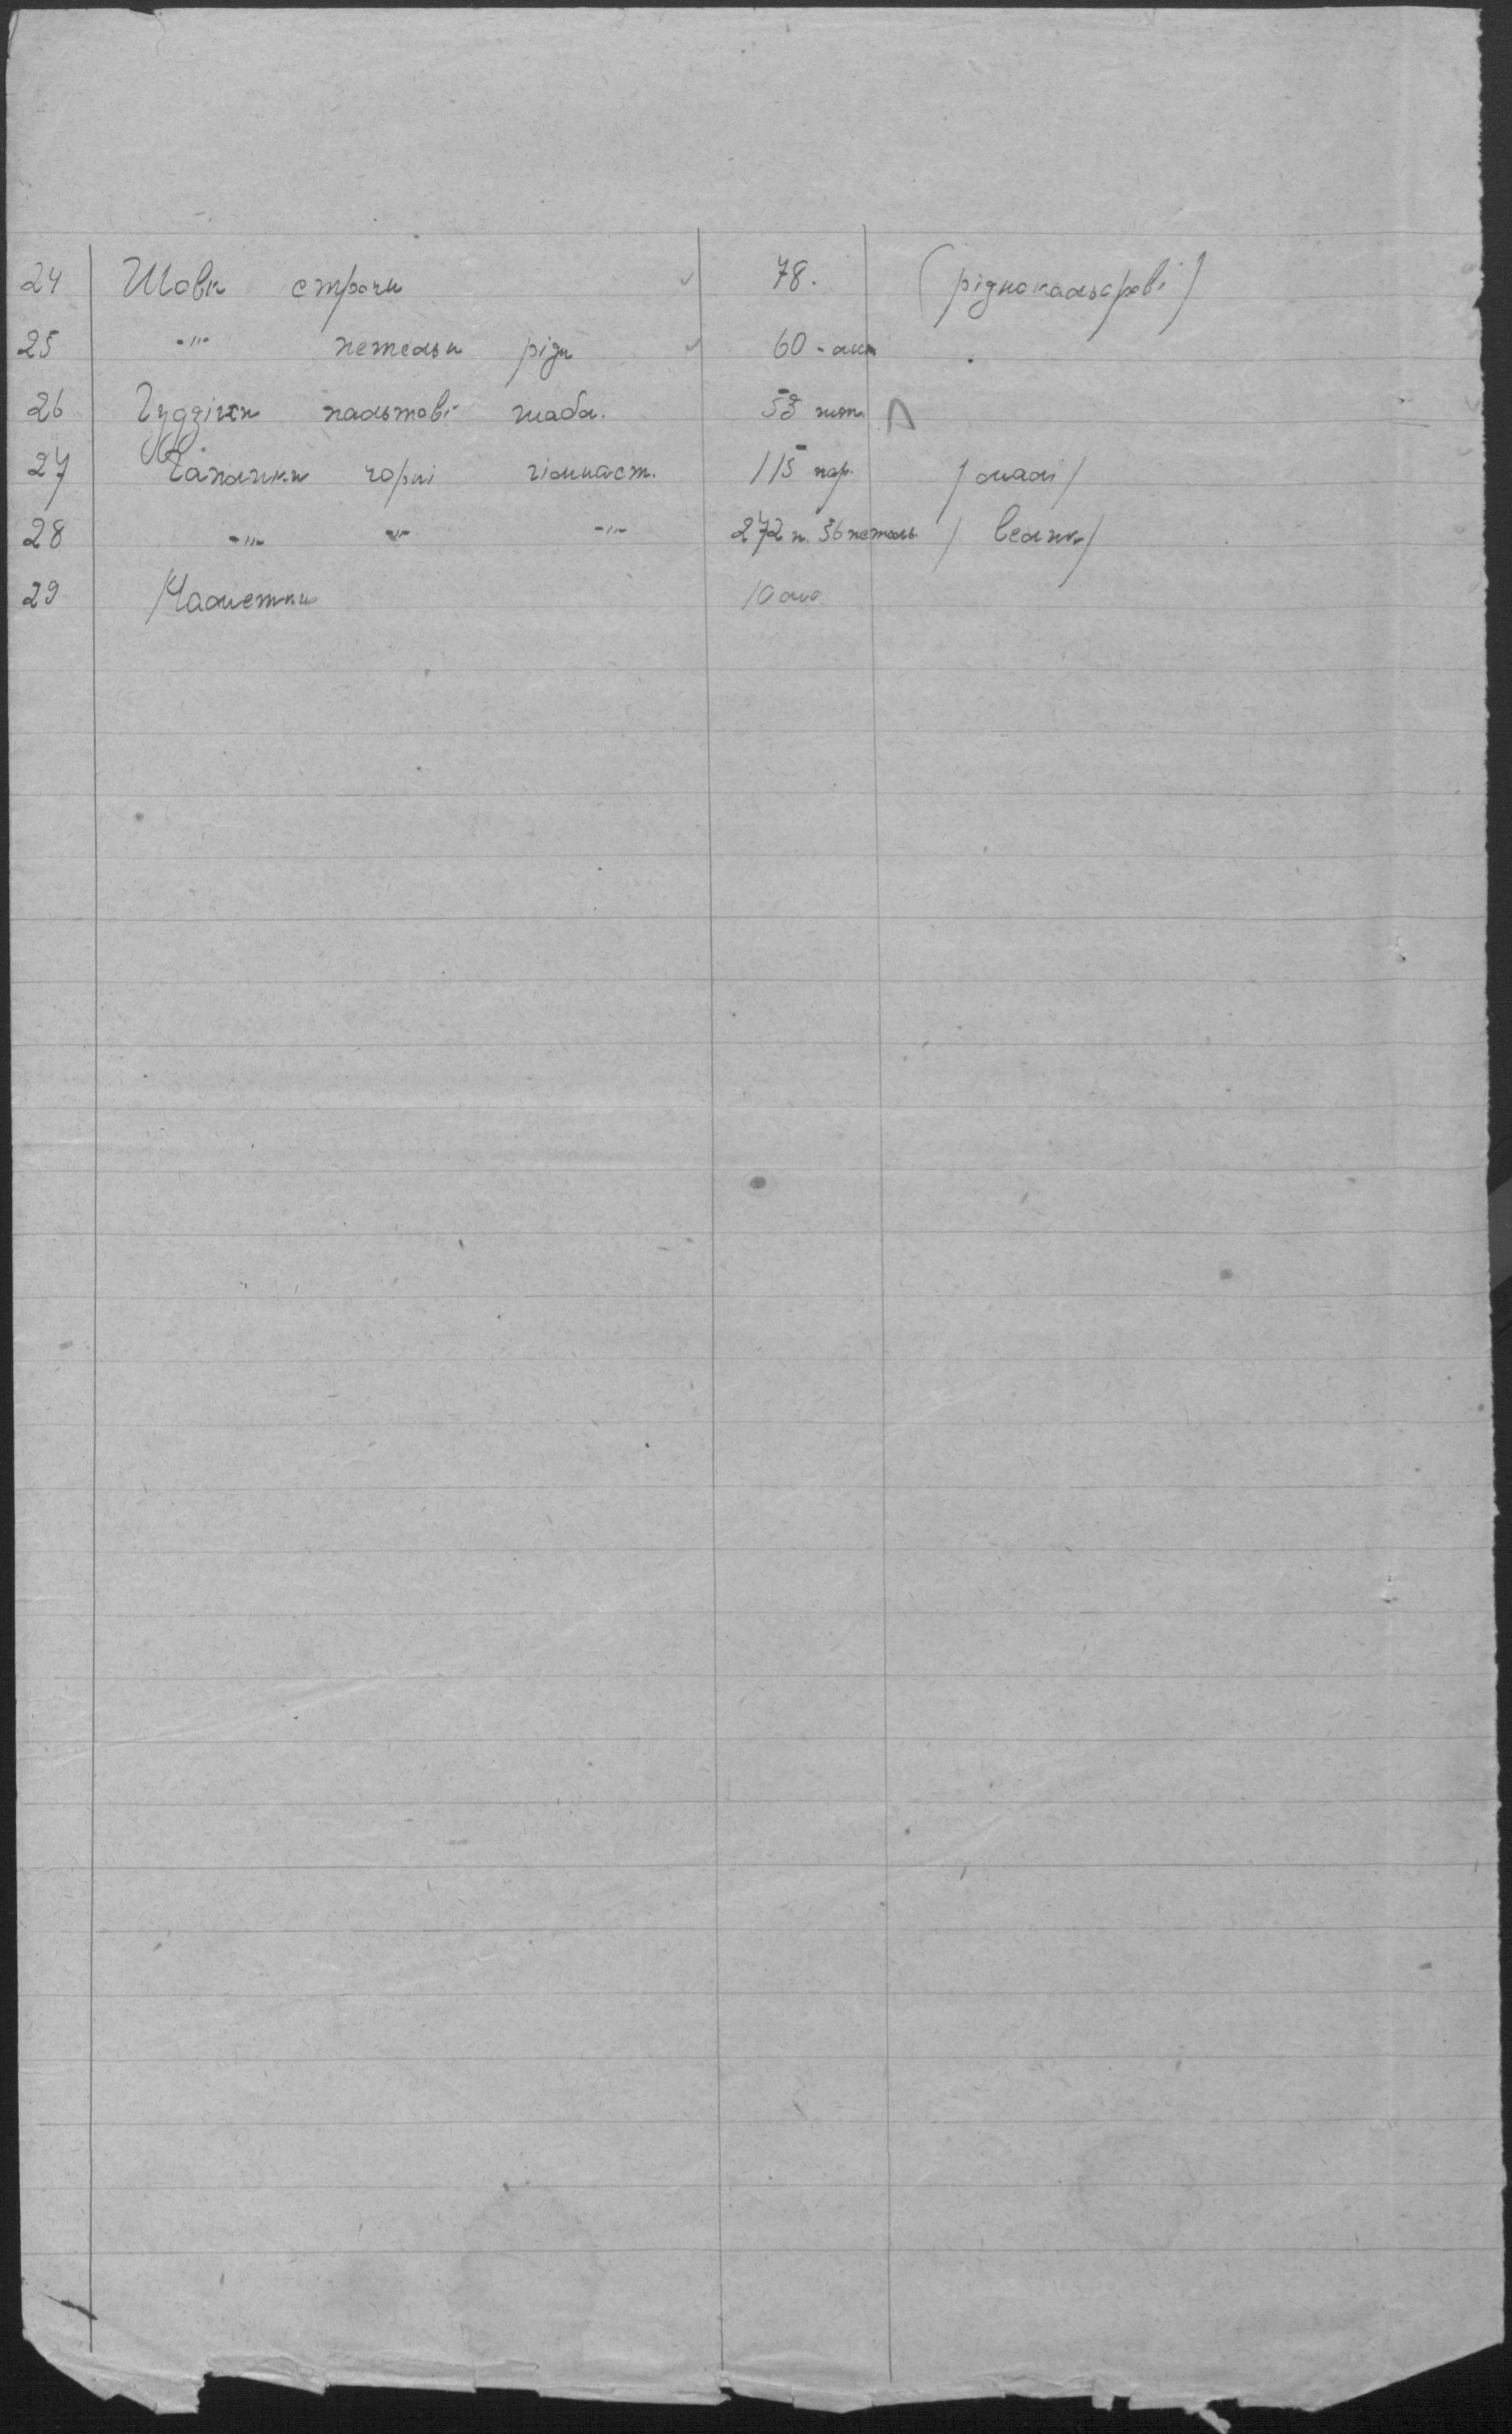 24 Шовк строчн ✓ 78. (ріднокольорові)
25 -"- петельн рідн ✓ 60 -
26 Гудзіки пальтові 53 шт.
27 Гаплики чорні гімнаст. 115 пар. /малі/
28 -"- -"- -"- 272 п. 36 петель /велик/
29